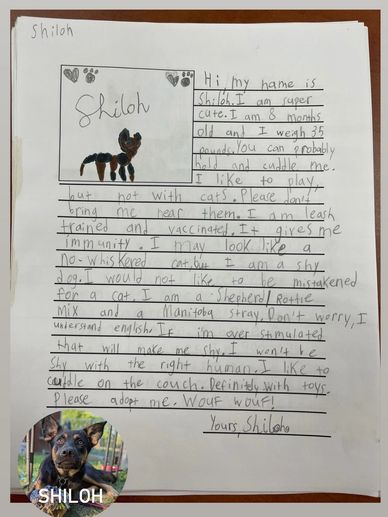 Shiloh
Shiloh
Hi, my name is
Shiloh. I am super
cute. I am 8 months
old and I weigh 35
pounds. You can probably
hold and cuddle me.
I like to play,
but not with cats. Please don't
bring me near them. I am leash
trained and vaccinated. It gives me
immunity. I may look like a
no-whiskered cat, but I am a shy
dog. I would not like to be mistakened
for a cat. I am a Shepherd/Rottie
mix and a Manitoba stray. Don't worry, I
understand english. If i'm over stimulated
that will make me shy. I won't be
shy with the right human. I like to
cuddle on the couch. Definitely with toys.
Please adopt me. WOUF WOUF!
Yours, Shiloh
SHILOH